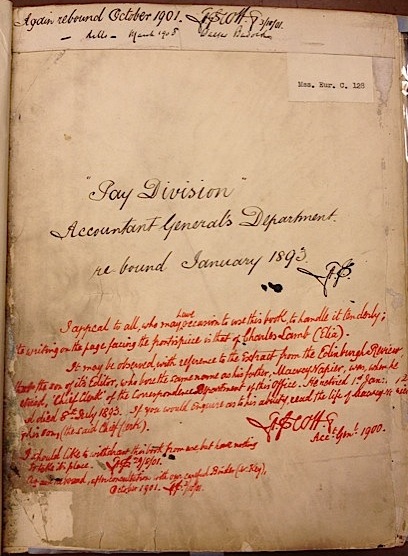 Again rebound October 1901. GFScott 3/10/01.
— ditto — March 1905
Mss. Eur. C. 128
"Pay Division"
Accountant General's Department.
re bound January 1893.
I appeal to all, who may have occasion to use this book, to handle it tenderly;
to writing on the page facing the frontispiece is that of Charles Lamb (Elia).
It may be observed with reference to the Extract from the Edinburgh Review
the son of its Editor, who bore the same name as his father, Macvey Napier, was, when he
"Chief Clerk" of the Correspondence Department of this Office. He retired 1st Jan:
died 8th July 1893. If you would enquire as to his ability, read the life of Macvey
his son, (the said Chief Clerk).
Acc: Genl. 1900.
I should like to withdraw this book from use but have nothing
to take its place.
after consultation with our careful Binder (Mr. Key),
October 1901.